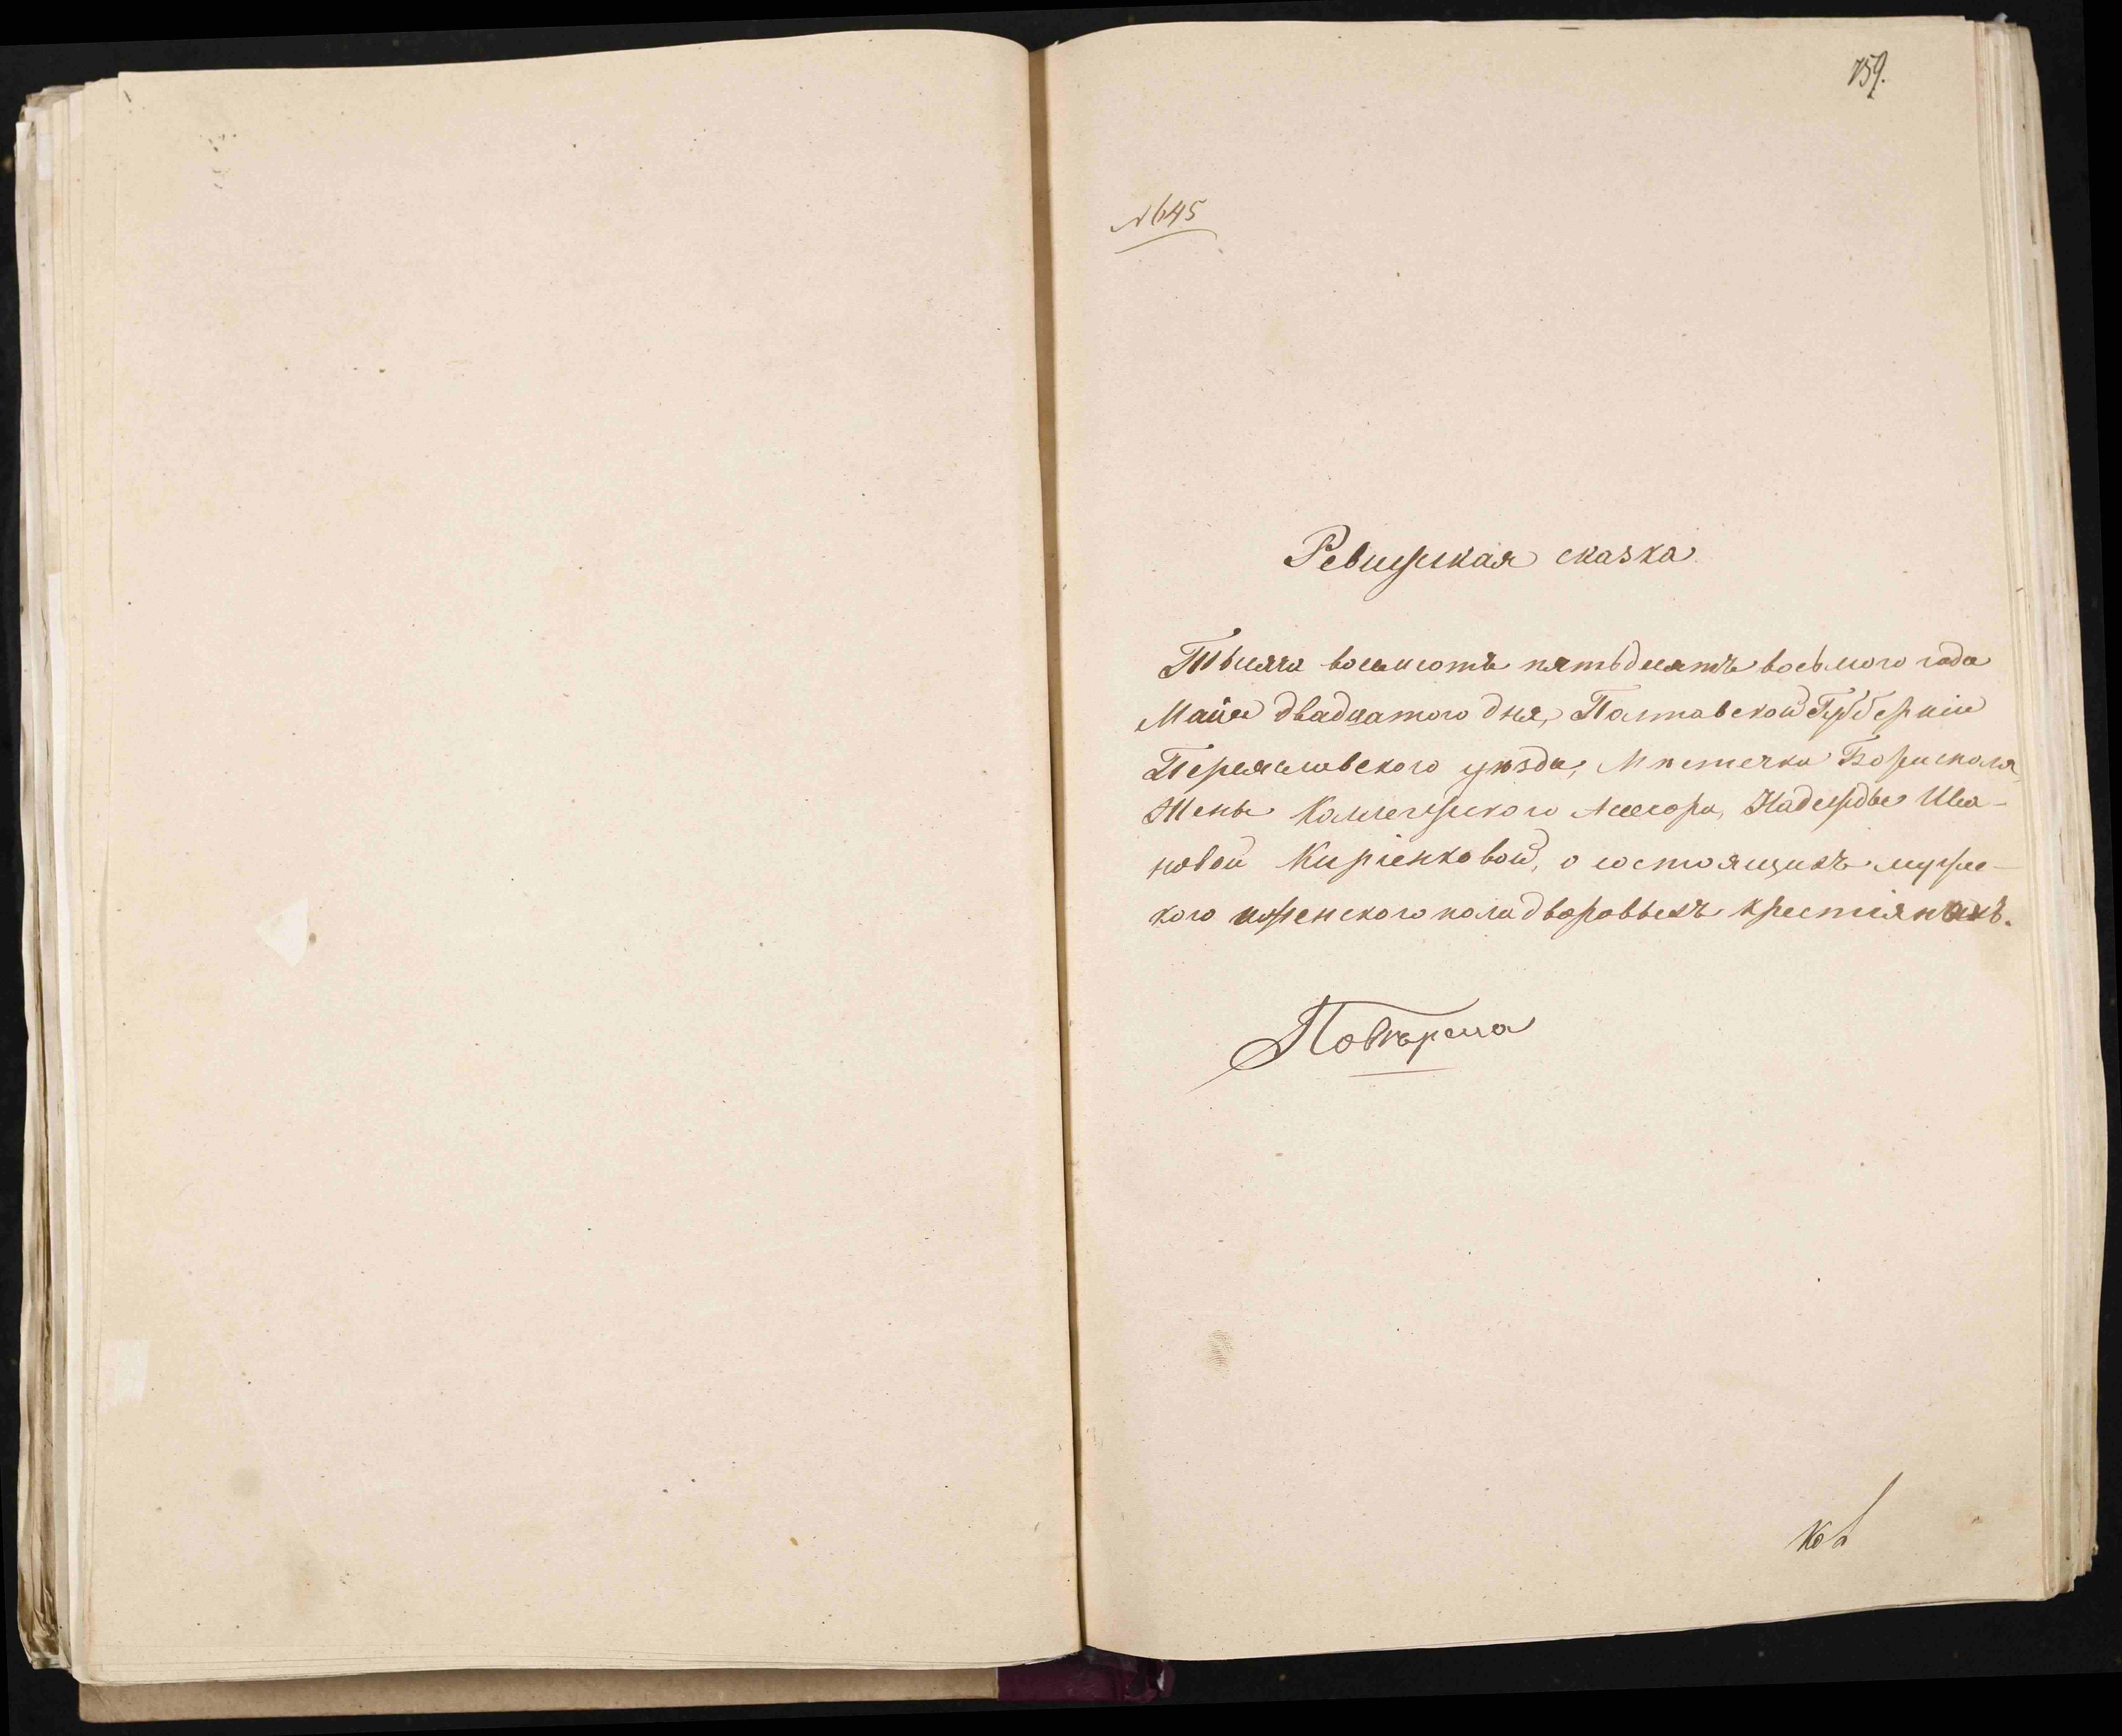 759.
№ 645
Ревижская сказка
Тысяча восемсотъ пятьдесятъ восьмого года
Майя двадцатого дня, Полтавской Губерніи
Переяславского уѣзда, Мѣстечка Борисполя,
Жены Коллежского Ассесора, Надежды Ива-
новой Киріенковой, о состоящихъ мужес-
кого и женского пола дворовыхъ крестіянахъ.
Повѣрена